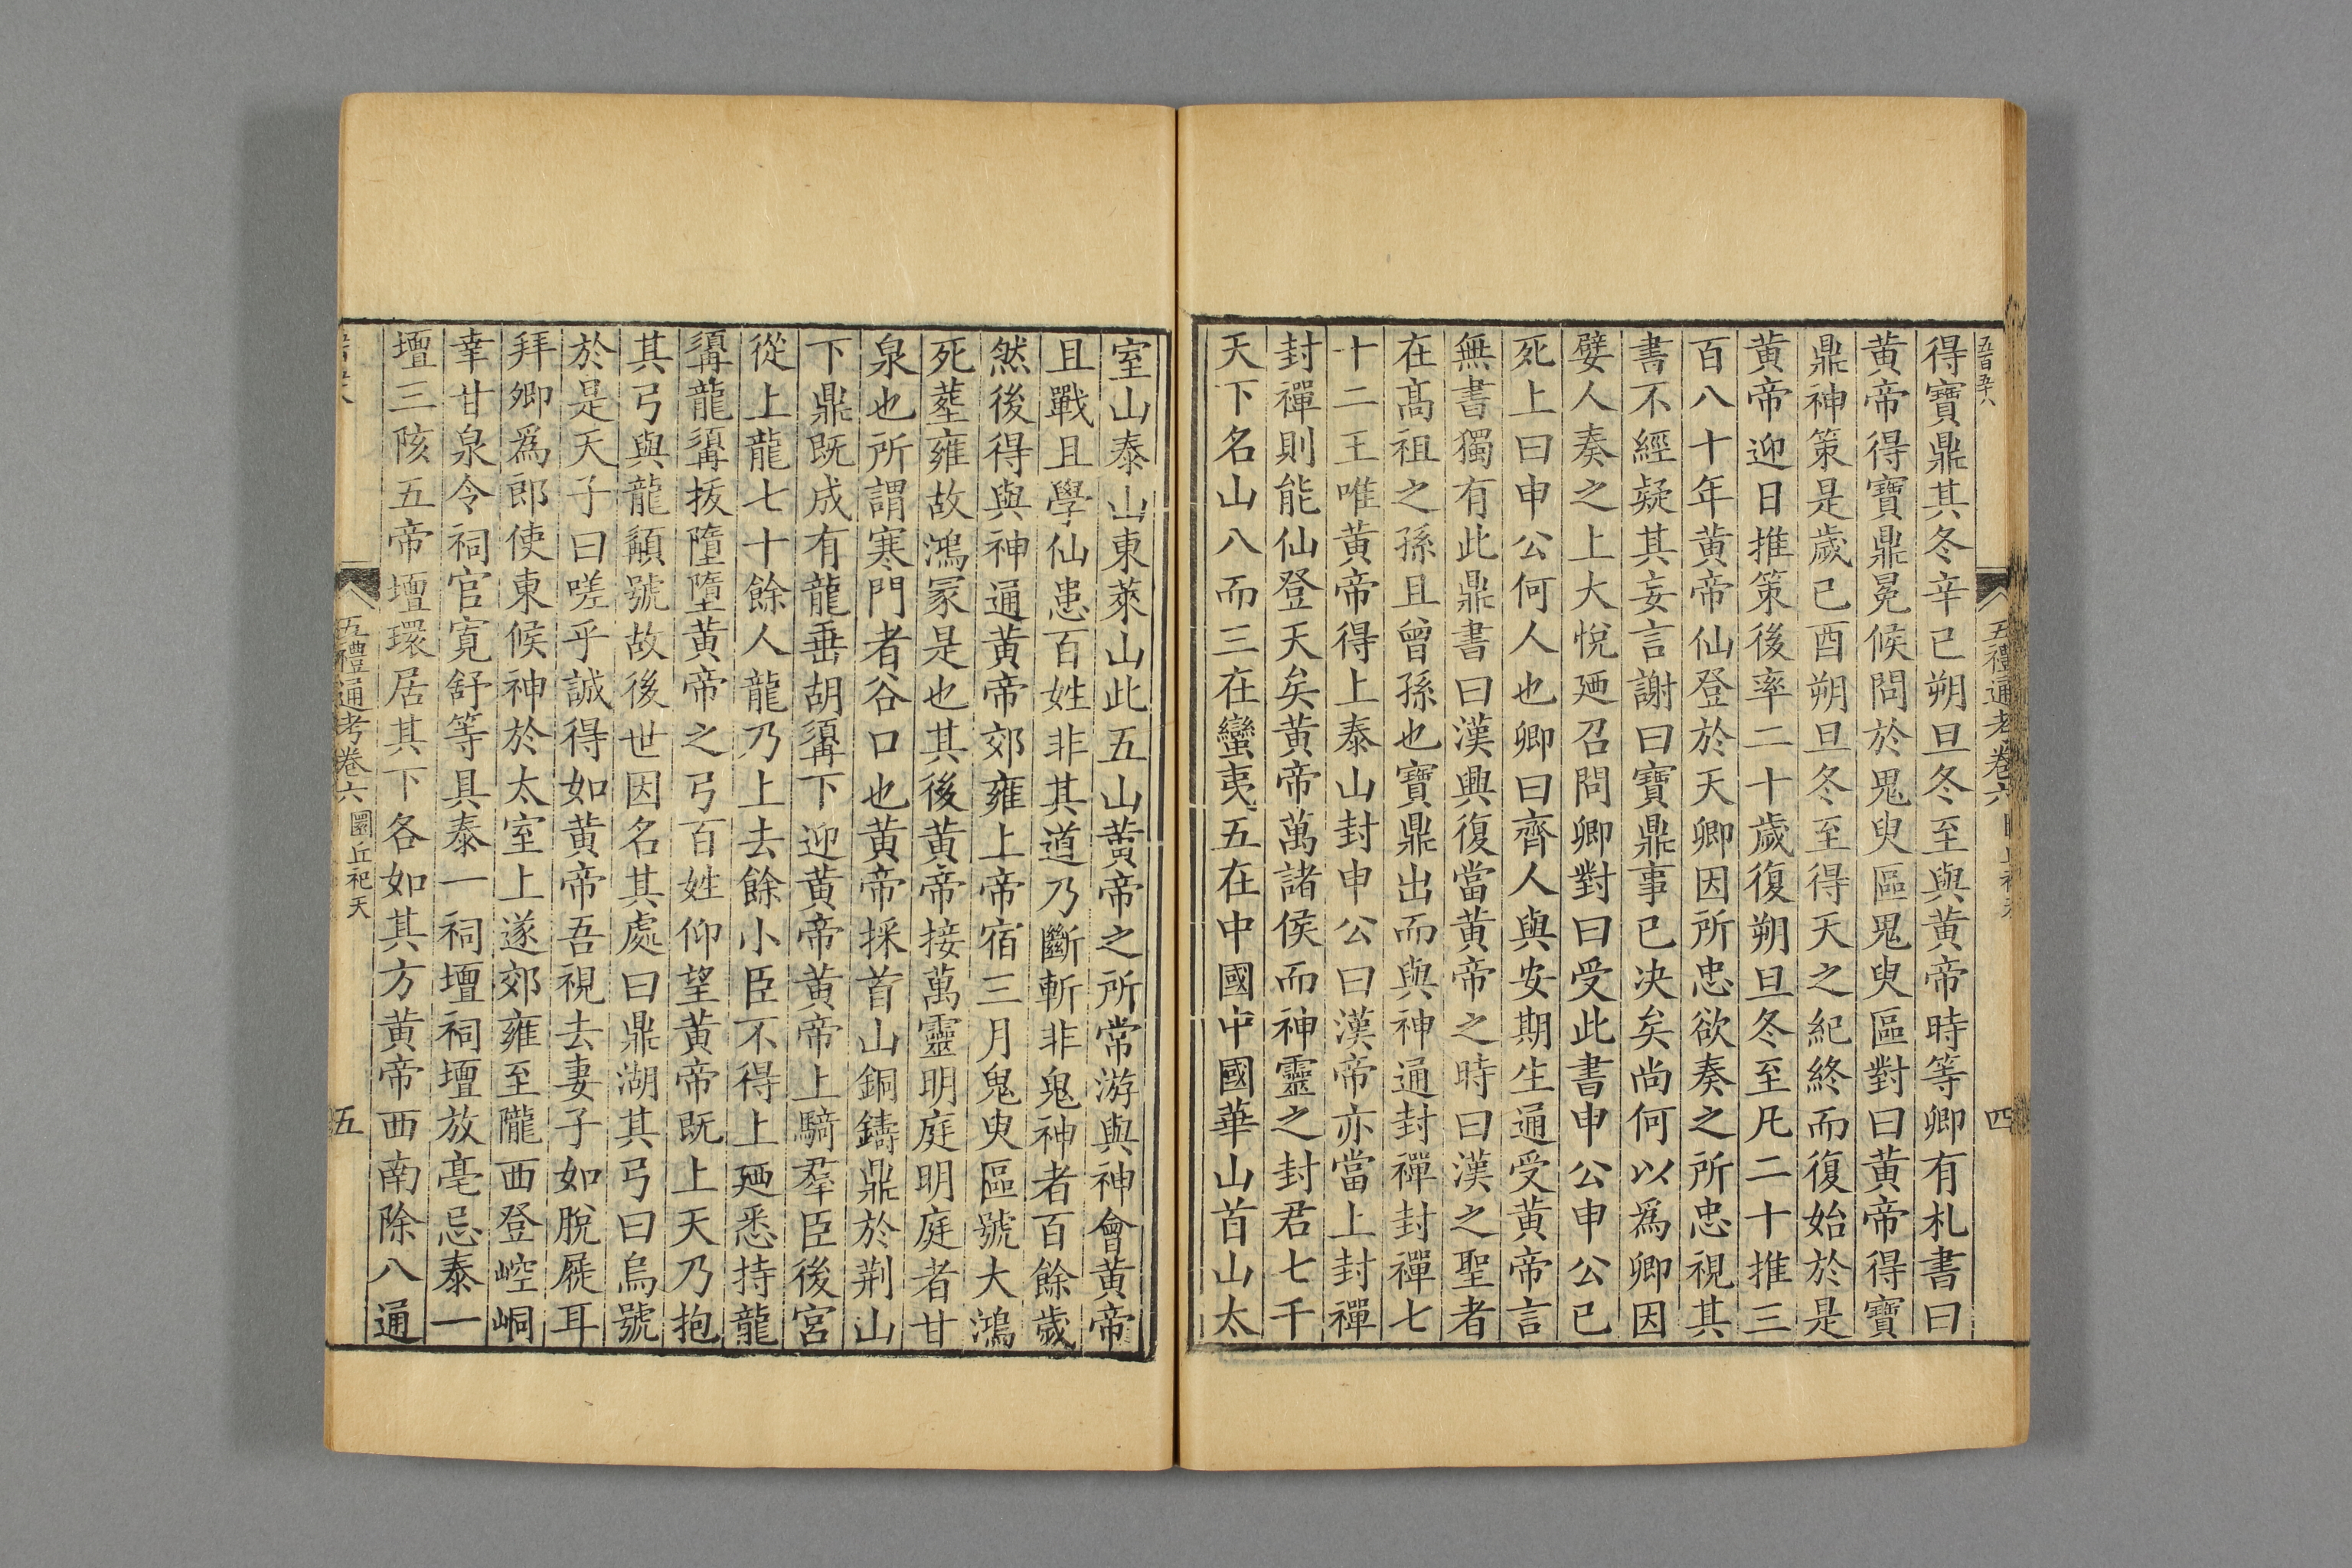 五百五十八
五禮通考卷六
四
得寶鼎其冬辛已朔旦冬至與黄帝時等卿有札書曰
黄帝得寶鼎冕候問於鬼臾區鬼臾區對曰黄帝得寶
鼎神策是歲己酉朔旦冬至得天之紀終而復始於是
黄帝迎日推策後率二十歲復朔旦冬至凡二十推三
百八十年黄帝仙登於天卿因所忠欲奏之所忠視其
書不經疑其妄言謝曰寶鼎事已决矣尚何以爲卿因
嬖人奏之上大悅廼召問卿對曰受此書申公申公已
死上曰申公何人也卿曰齊人與安期生通受黄帝言
無書獨有此鼎書曰漢興復當黄帝之時曰漢之聖者
在髙祖之孫且曾孫也寶鼎出而與神通封禪封禪七
十二王唯黄帝得上泰山封申公曰漢帝亦當上封禪
封禪則能仙登天矣黄帝萬諸侯而神靈之封君七千
天下名山八而三在蠻夷五在中國中國華山首山太
室山泰山東萊山此五山黄帝之所常游與神會黄帝
且戰且學仙患百姓非其道乃斷斬非鬼神者百餘歲
然後得與神通黄帝郊雍上帝宿三月鬼臾區號大鴻
死塟雍故鴻冢是也其後黄帝接萬靈明庭明庭者甘
泉也所謂寒門者谷口也黄帝採首山銅鑄鼎於荆山
下鼎既成有龍垂胡䰅下迎黄帝黄帝上騎羣臣後宮
從上龍七十餘人龍乃上去餘小臣不得上廼悉持龍
䰅龍䰅拔墮墮黄帝之弓百姓仰望黄帝既上天乃抱
其弓與龍䪼號故後世因名其處曰鼎湖其弓曰烏號
於是天子曰嗟乎誠得如黄帝吾視去妻子如脫屣耳
拜卿爲郎使東候神於太室上遂郊雍至隴西登崆峒
幸甘泉令祠官寬舒等具泰一祠壇祠壇放亳忌泰一
壇三陔五帝壇環居其下各如其方黄帝西南除八通
五禮通考卷六 圜丘祀天
五